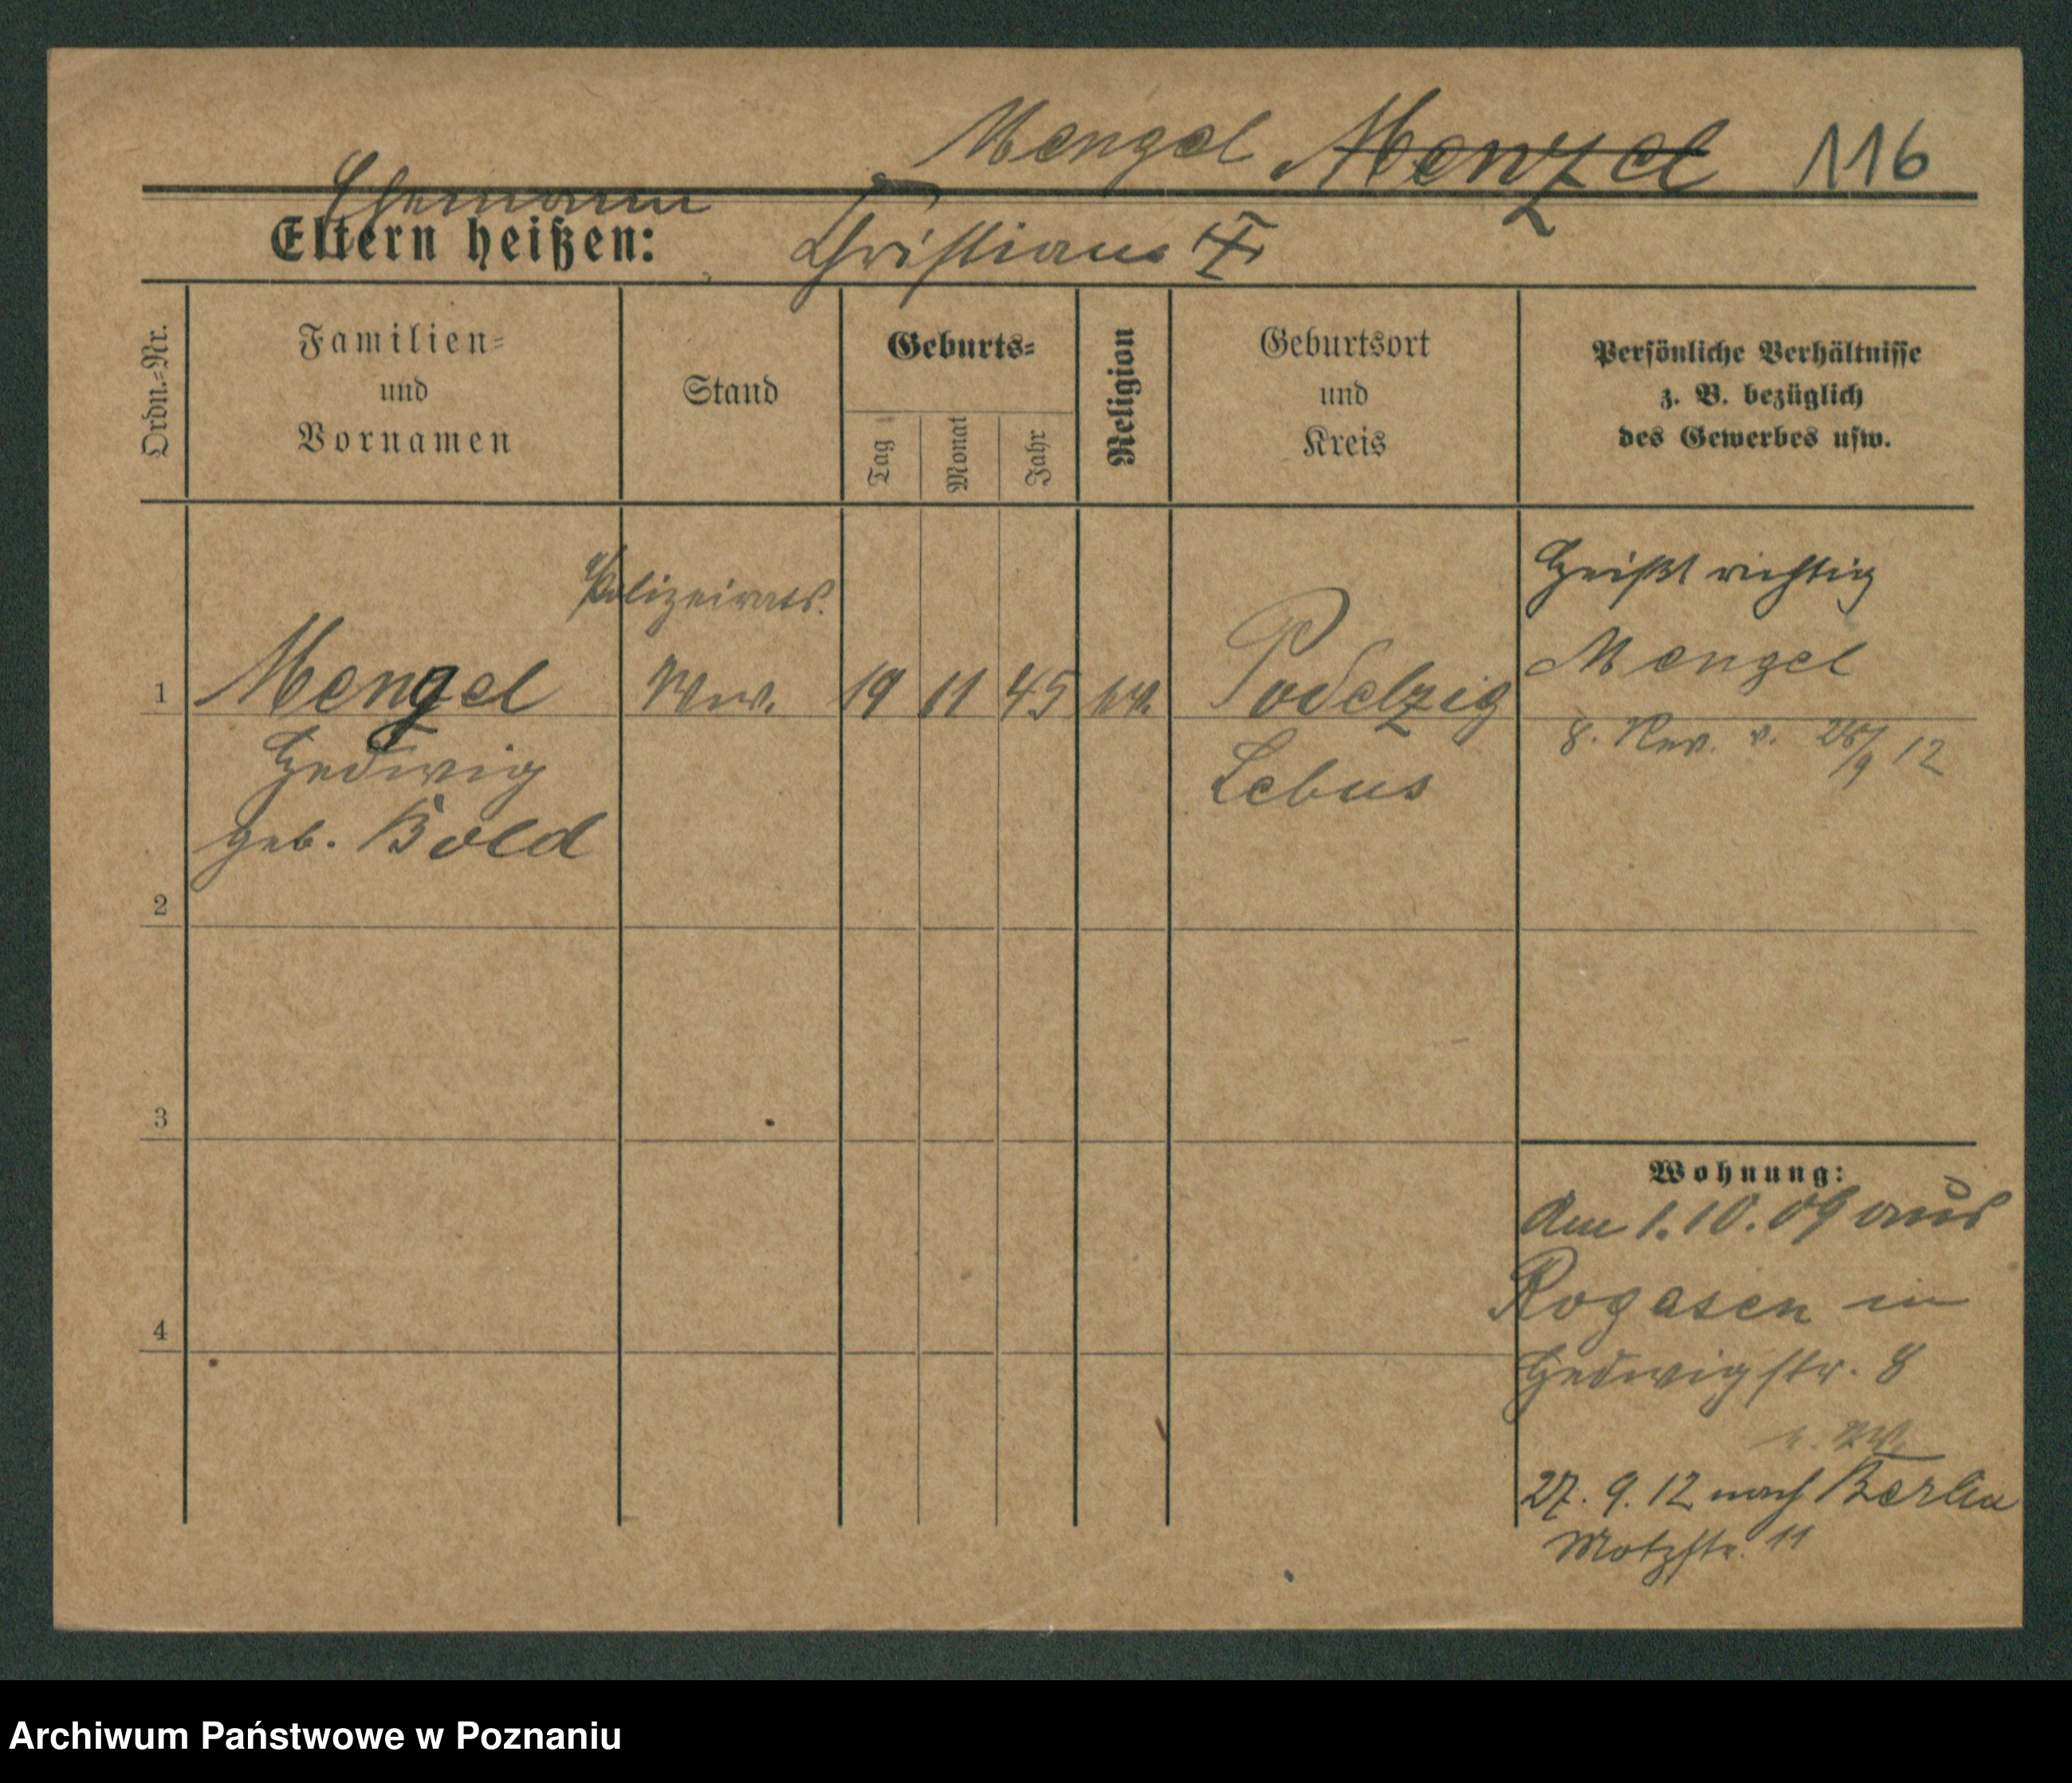 Mengel Menzel 116
Ehemann
Eltern heißen: Christian
Ordn.=Nr.
Familien=
und
Vornamen
Stand
Geburts=
Tag
Monat
Jahr
Religion
Geburtsort
und
Kreis
Persönliche Verhältnisse
z. B. bezüglich
des Gewerbes usw.
Polizeirats.
1 Mengel Ww. 19 11 45 ev. Podelzig
Hedwig Lebus
geb. Bold
Heißt richtig
Mengel
8. Rev. v. 9/12
2
3
4
Wohnung:
Am 1.10.09 aus
Rogasen in
Hedwigstr. 8
27. 9. 12 nach Berlin
Motzstr. 11
Archiwum Państwowe w Poznaniu